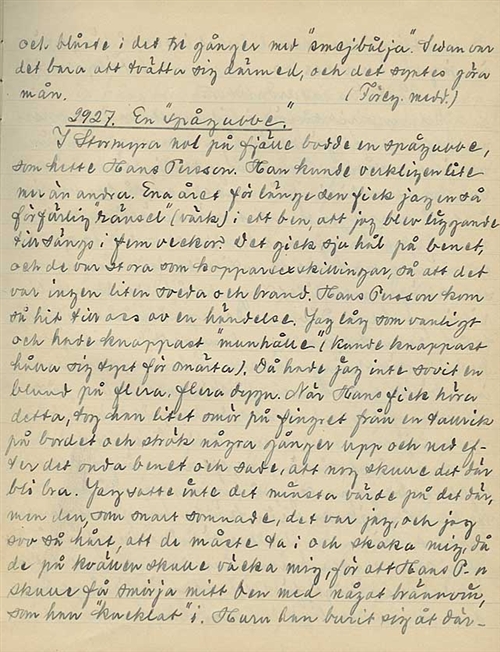 och blåste i det tre gånger med "smejbälja". Sedan var
det bara att tvätta sig därmed, och det syntes göra
mån. (Föreg. medd.)
2927. En "spågubbe."
I Stormyra nol på fjälle bodde en spågubbe,
som hette Hans Persson. Han kunde verkligen lite
mer än andra. Ena året för länge sen fick jag en så
förfärlig "känsel" (värk) i ett ben, att jag blev liggande
till sängs i fem veckor. Det gick sju hål på benet,
och de var stora som kopparsexskillingar, så att det
var ingen liten sveda och brand. Hans Persson kom
så hit till oss av en händelse. Jag låg som vanligt
och hade knappast "munhälle" (kunde knappast
hålla sig tyst för smärta). Då hade jag inte sovit en
blund på flera, flera dygn. När Hans fick höra
detta, tog han litet smör på fingret från en tallrik
på bordet och strök några gånger upp och ned ef-
ter det onda benet och sade, att nog skulle det där
bli bra. Jag satte inte det minsta värde på det där,
men den, som snart somnade, det var jag, och jag
sov så hårt, att de måste ta i och skaka mig, då
de på kvällen skulle väcka mig, för att Hans P-n
skulle få smörja mitt ben med något brännvin,
som han "kucklat" i. Huru han burit sig åt där-